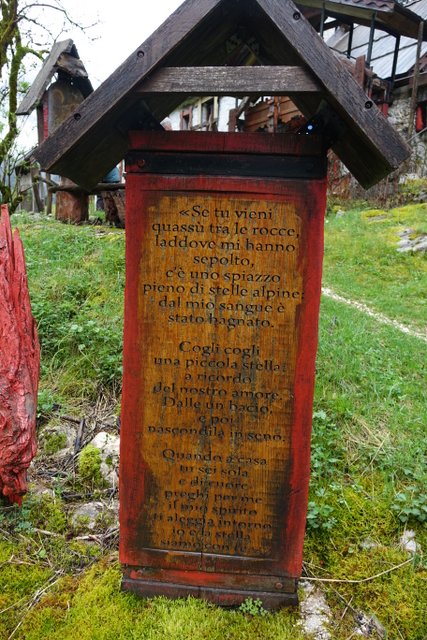 «Se tu vieni
quassù tra le rocce,
laddove mi hanno
sepolto,
c'è uno spiazzo
pieno di stelle alpine:
dal mio sangue è
stato bagnato.
Cogli cogli
una piccola stella:
a ricordo
del nostro amore.
Dalle un bacio,
e poi
nascondila in seno.
Quando a casa
tu sei sola
e di cuore
preghi per me
il mio spirito
ti aleggia intorno
io e la stella
siamo con te